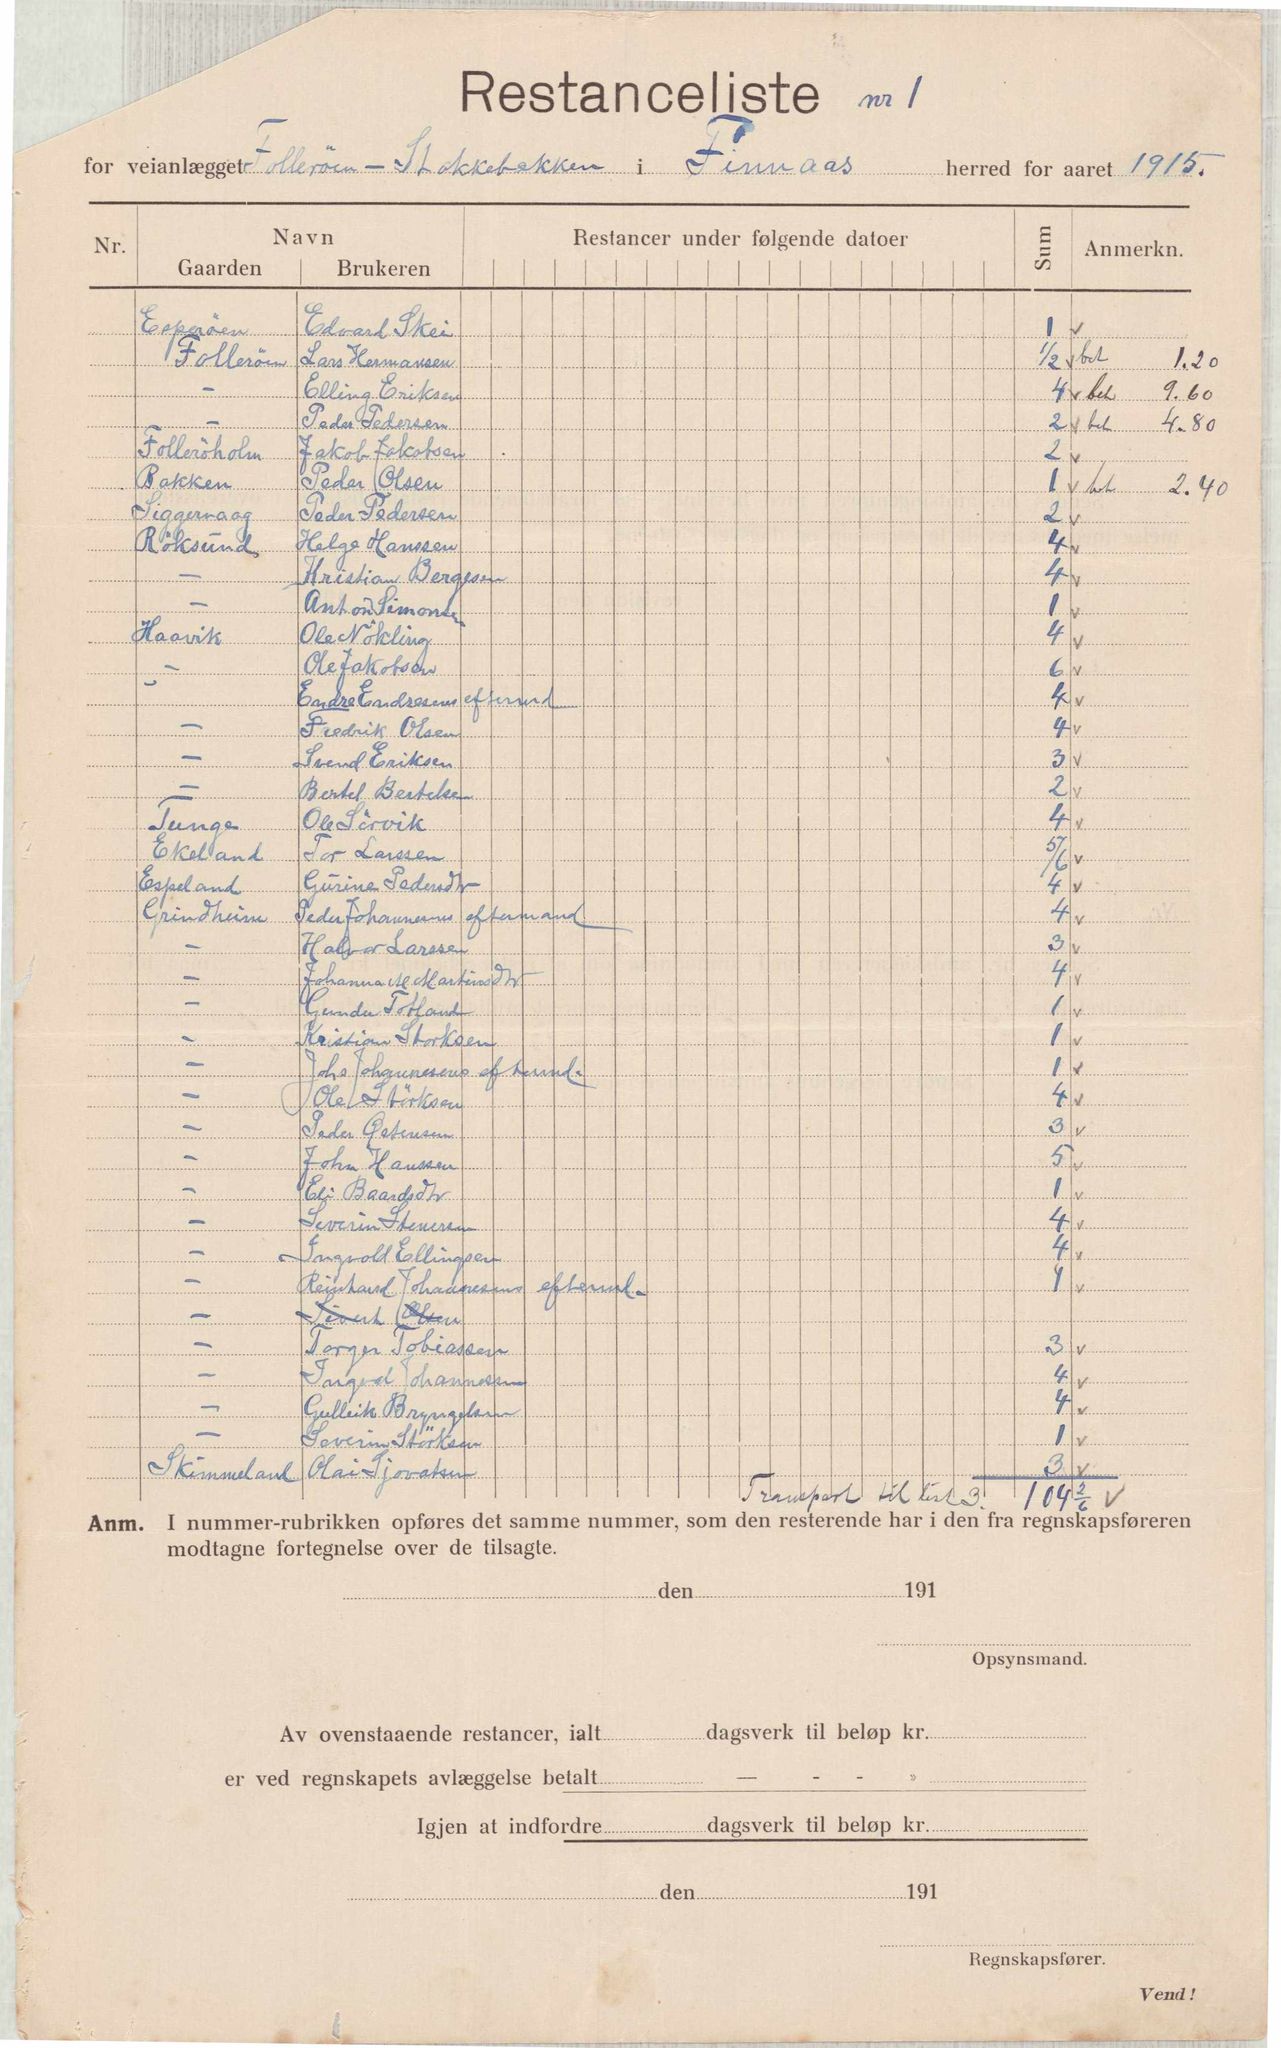 Restanceliste nr 1
for veianlægget Folleröen - Stokkebekken i Finnaas herred for aaret 1915.
Nr. Navn Restancer under følgende datoer Sum Anmerkn.
Gaarden Brukeren
Esperöen Edvard Skei 1 v
Folleröen Lars Hermansen 1/2 v bet 1.20
- Elling Eriksen 4 v bet 9.60
- Peder Pedersen 2 v bet 4.80
Folleröholm Jakob Jakobsen 2 v
Bakken Peder Olsen 1 v bet 2.40
Siggervaag Peder Pedersen 2 v
Röksund Helge Hanssen 4 v
- Kristian Bergesen 4 v
- Anton Simonsen 1 v
Haavik Ole Nökling 4 v
- Ole Jakobsen 6 v
- Endre Endresens eftermd 4 v
- Fredrik Olsen 4 v
- Svend Eriksen 3 v
- Bertel Bertelsen 2 v
Tunge Ole Sörvik 4 v
Ekeland Tor Larssen 5/6 v
Espeland Gurine Pedersdtr 4 v
Grindheim Peder Johannesens eftermand 4 v
- Halvor Larssen 3 v
- Johanna M Martinsdtr 4 v
- Gunder Totland 1 v
- Kristian Storksen 1 v
- Johs Johannesens eftermd. 1 v
- Ole Störksen 4 v
- Peder 3 v
- John Hanssen 5 v
- Eli Baardsdtr 1 v
- Severin Stenersen 4 v
- Ingvold Ellingsen 4 v
- Reinhard Johannesens eftermd. 1 v
- Sivert Olsen
- Torger Tobiassen 3 v
- Ingvol Johannessen 4 v
- Gulleik Bryngelsen 4 v
- Severin Störksen 1 v
Skimmeland Olai Sjovatsen 3 v
Transport til list 3. 104 2/6 v
Anm. I nummer-rubrikken opføres det samme nummer, som den resterende har i den fra regnskapsføreren
modtagne fortegnelse over de tilsagte.
den 191
Opsynsmand.
Av ovenstaaende restancer, ialt dagsverk til beløp kr.
er ved regnskapets avlæggelse betalt — - - »
Igjen at indfordre dagsverk til beløp kr.
den 191
Regnskapsfører.
Vend!